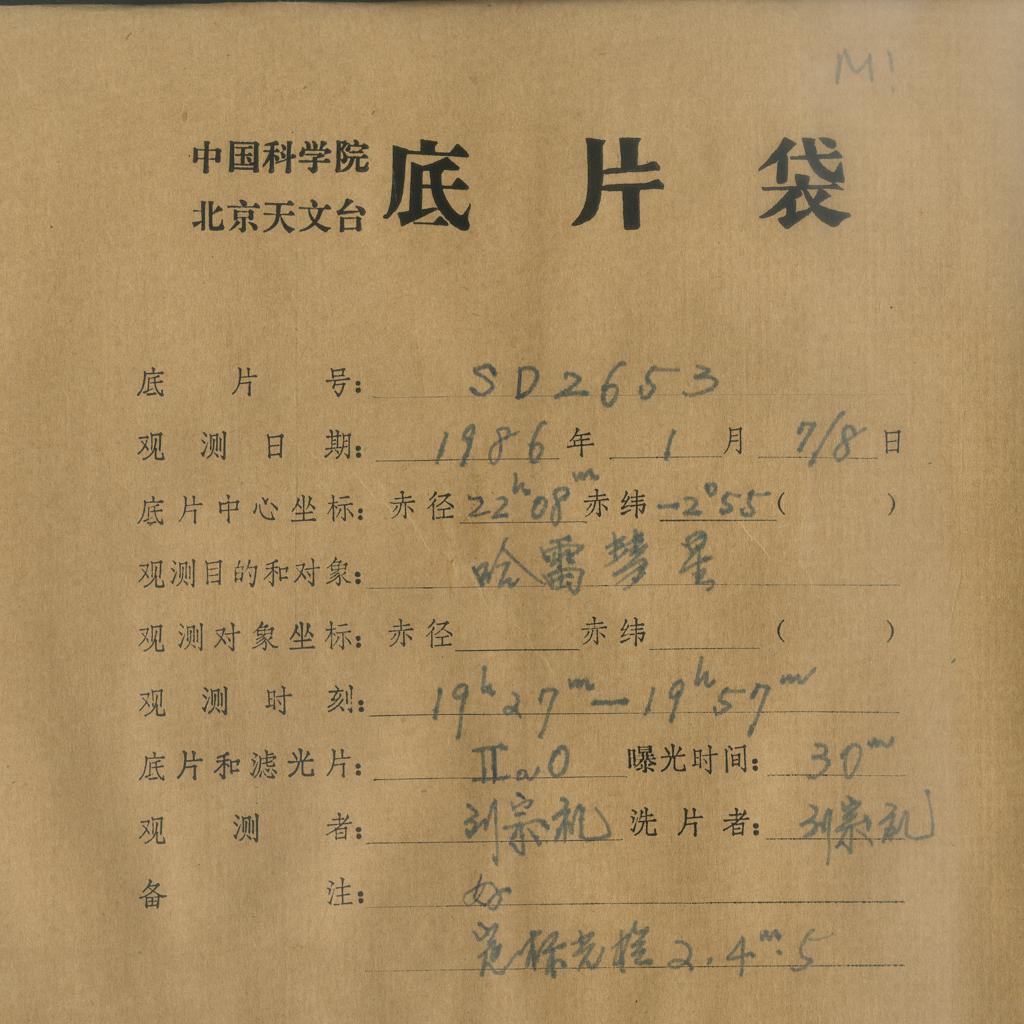 M1
中国科学院
北京天文台 底片袋
底片号: SD2653
观测日期: 1986年 1月 7/8日
底片中心坐标: 赤径 22h08m 赤纬 -2°55 ( )
观测目的和对象: 哈雷彗星
观测对象坐标: 赤径 赤纬 ( )
观测时刻: 19h27m—19h57m
底片和滤光片: IIaO 曝光时间: 30m
观测者: 刘宗礼 洗片者: 刘宗礼
备注: 好
定标光楔 2.4m.5